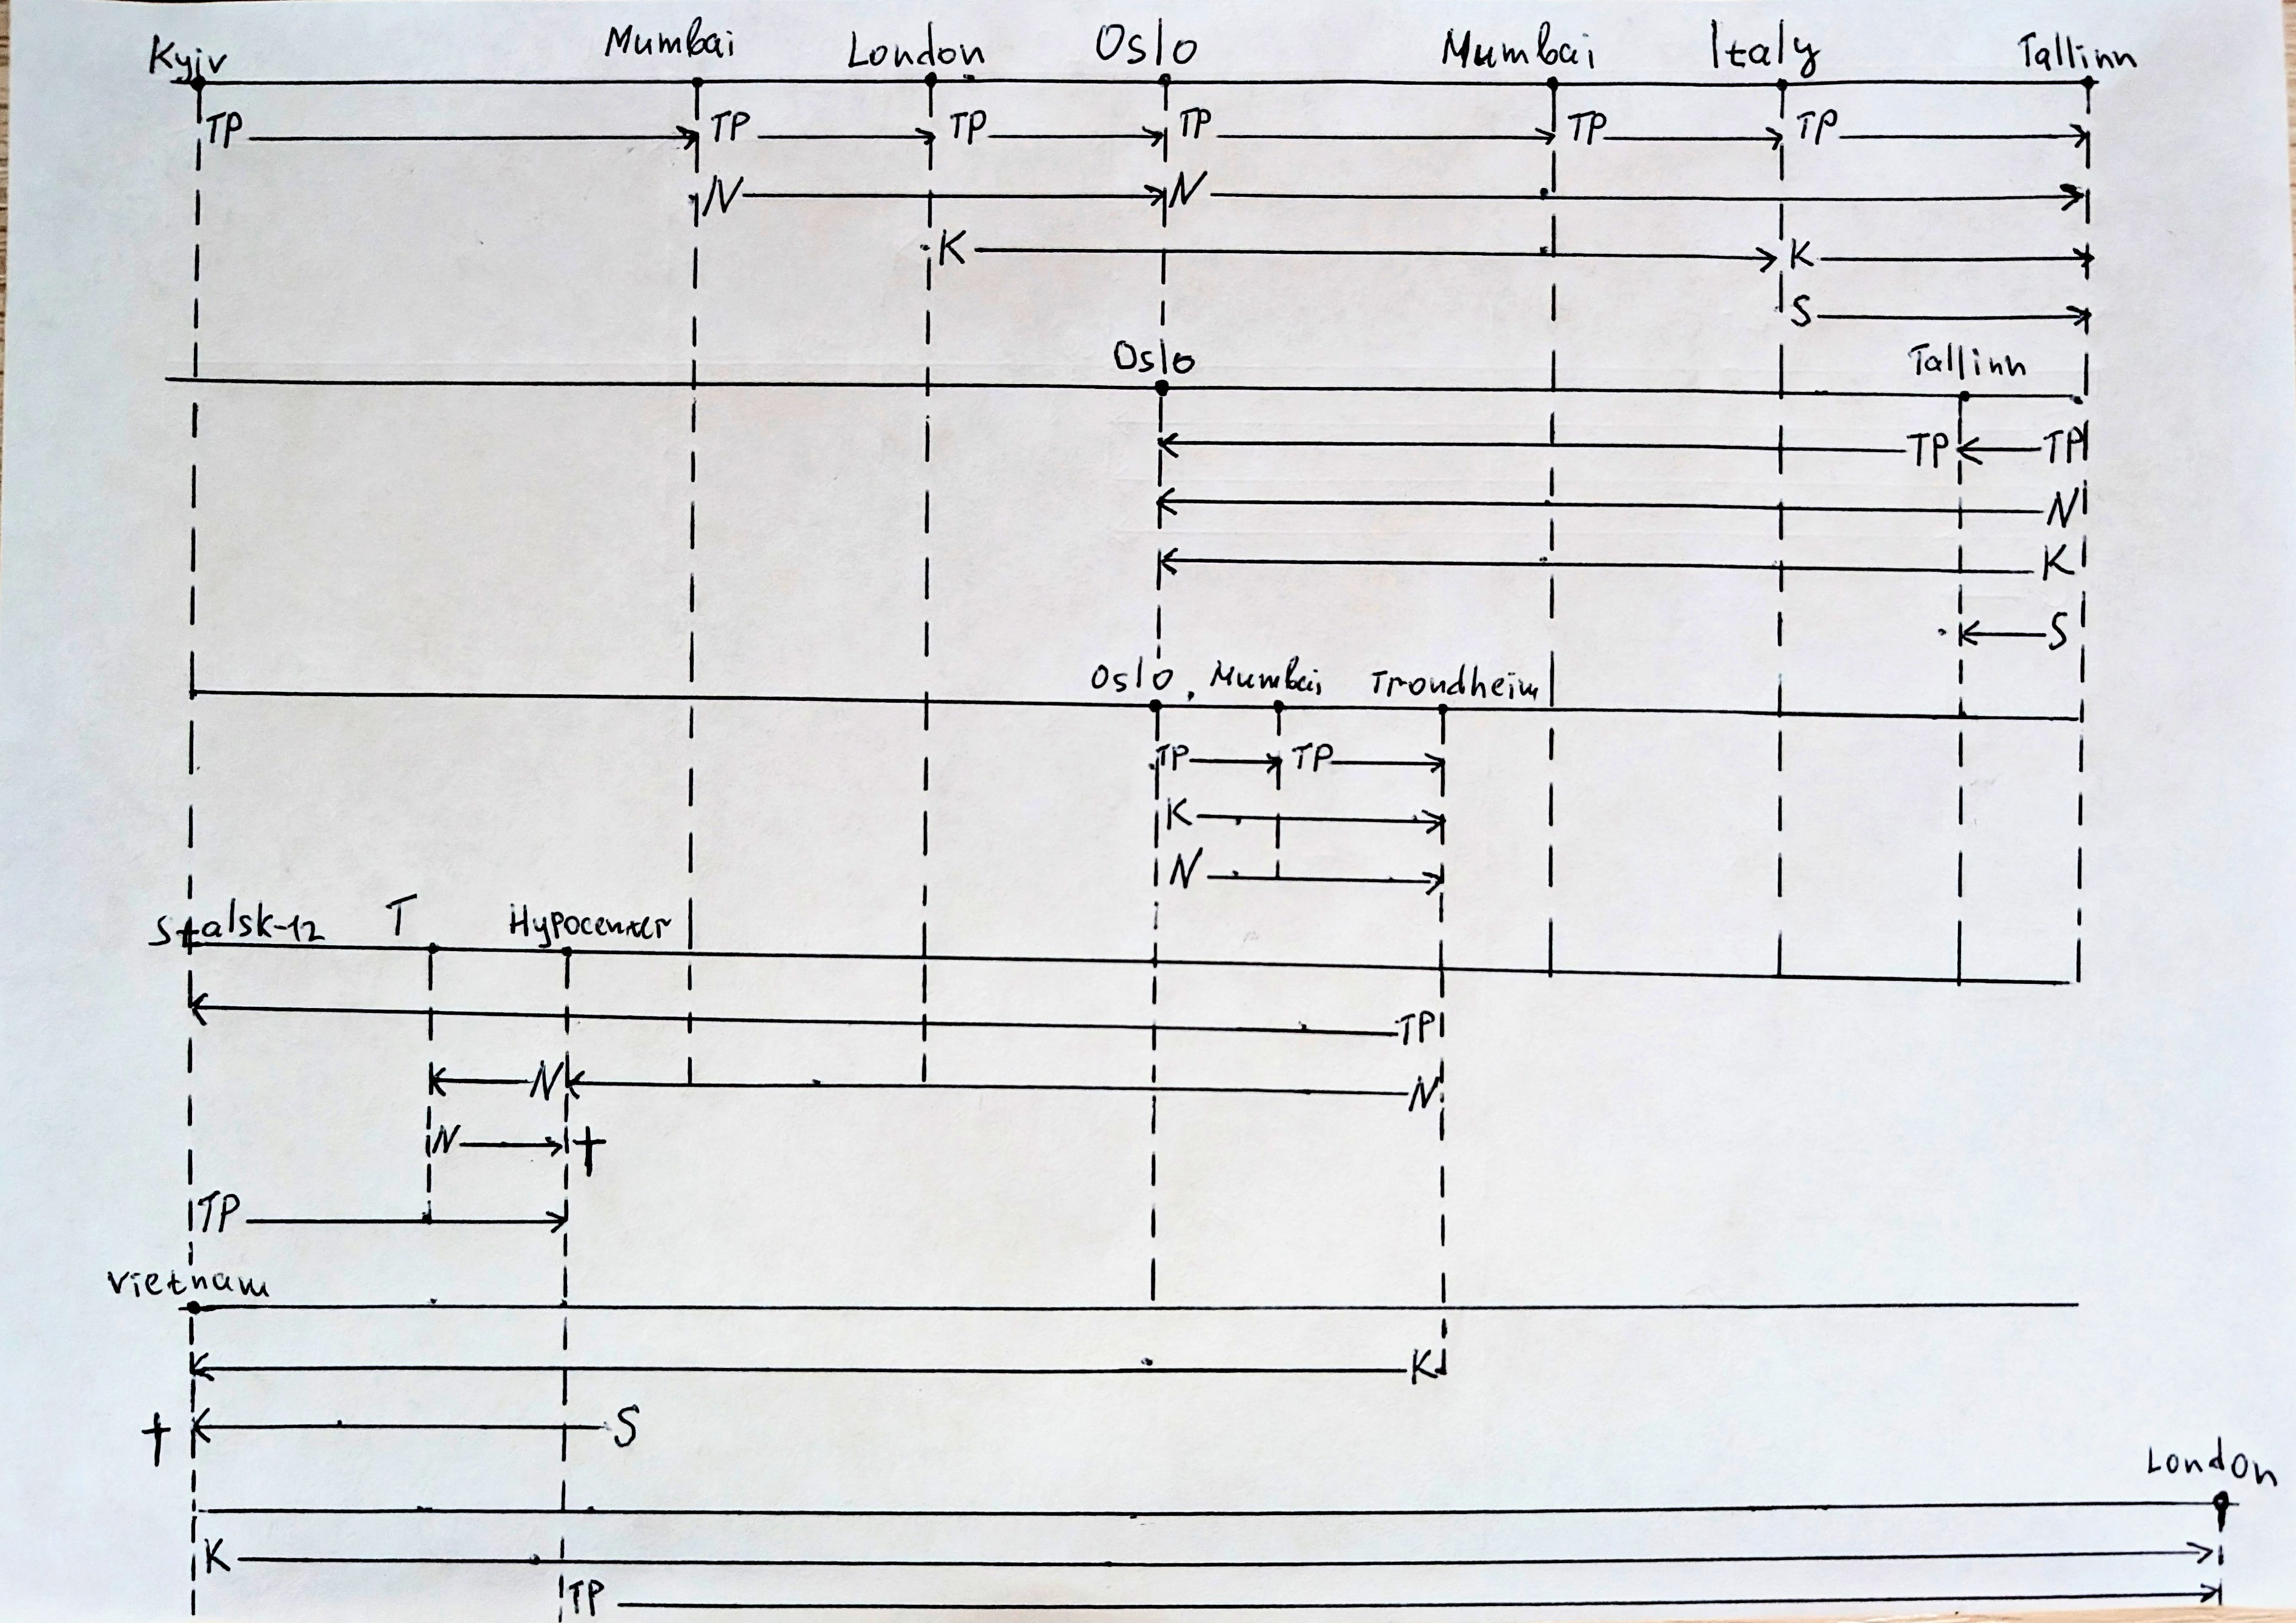 Kyiv Mumbai London Oslo Mumbai Italy Tallinn
TP TP TP TP TP TP
N N
K K
S
Oslo Tallinn
TP TP
N
K
S
Oslo Mumbai Trondheim
TP TP
K
N
Stalsk-12 T Hypocenter
TP
N N
N †
TP
Vietnam
K
† S
London
K
TP